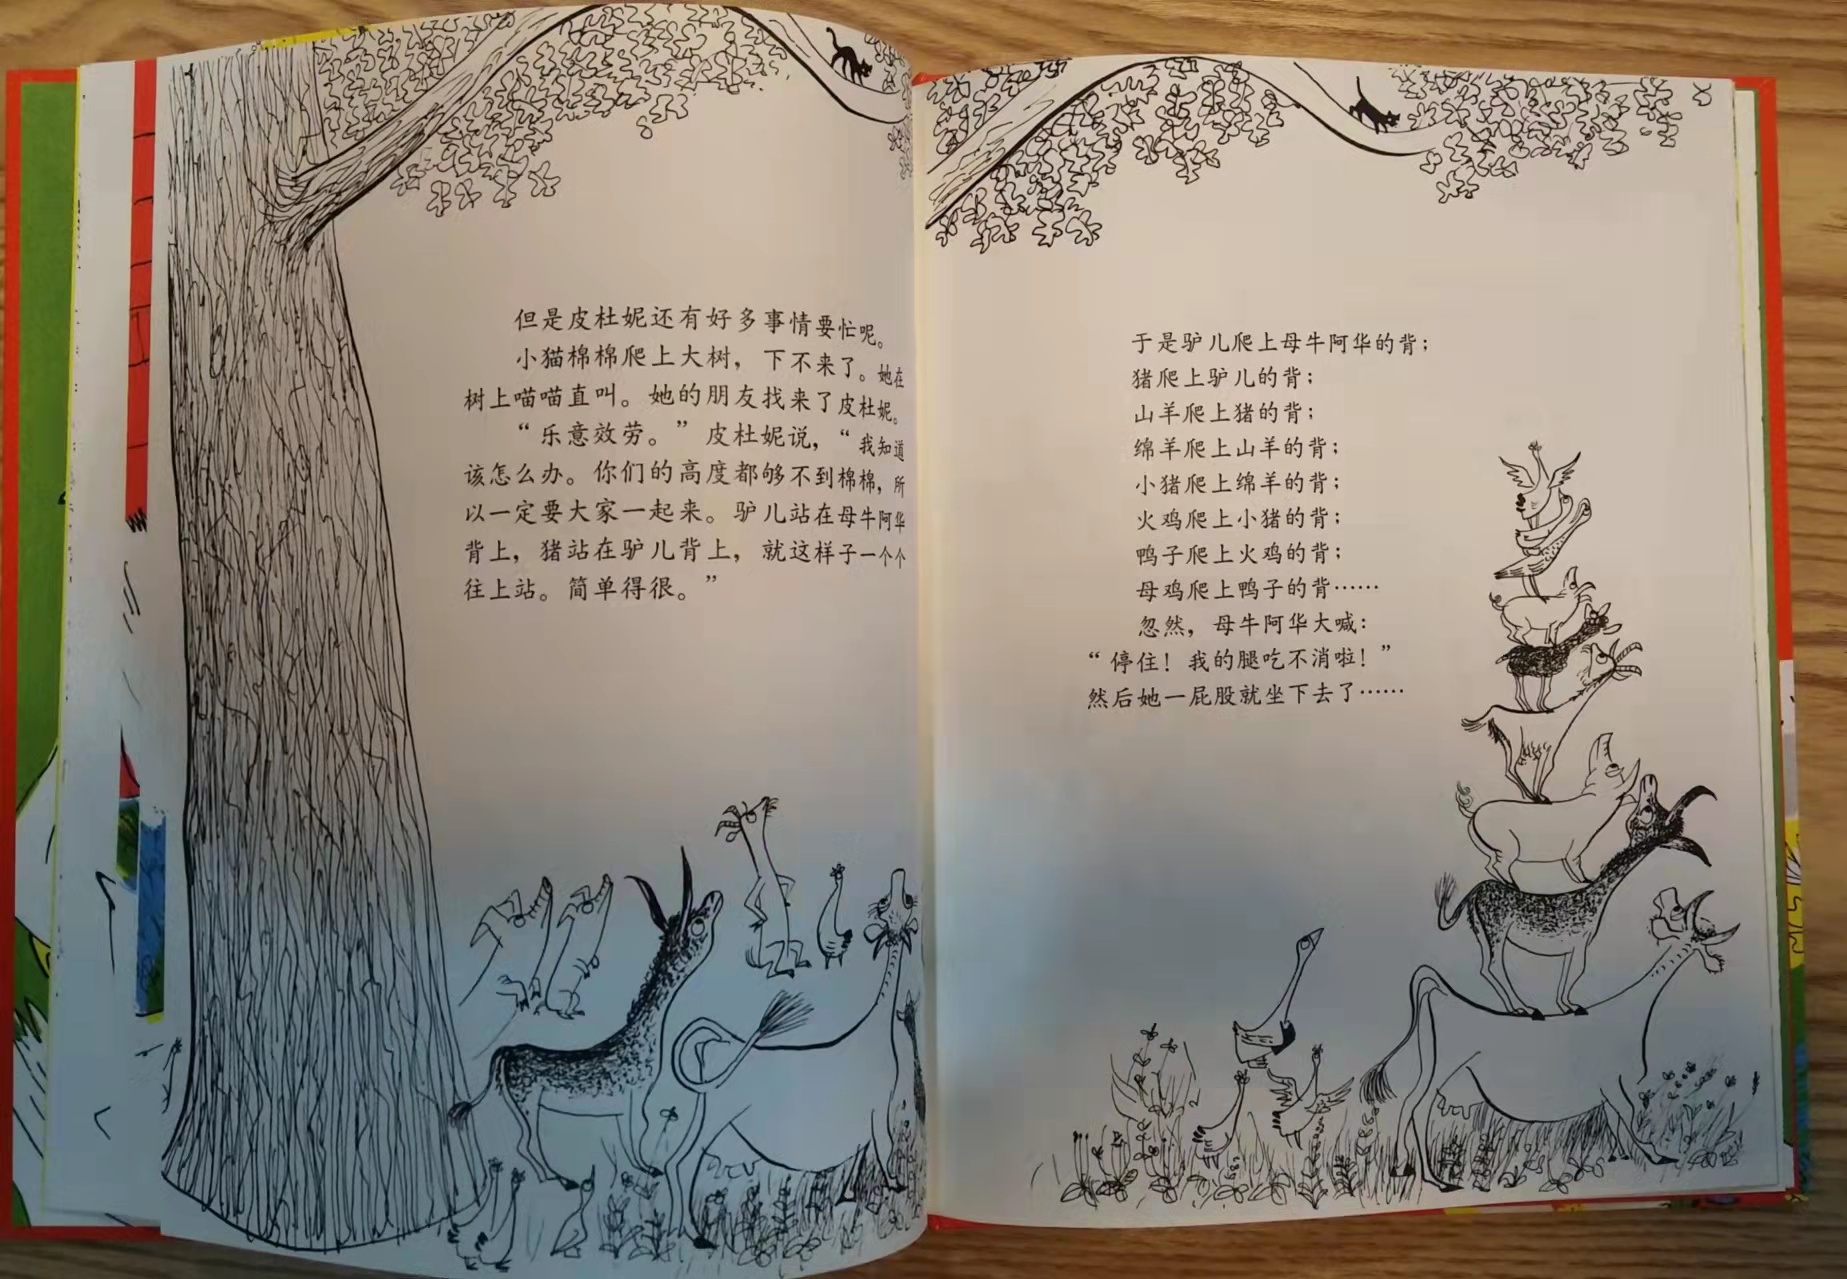 但是皮杜妮还有好多事情要忙呢。
小猫棉棉爬上大树，下不来了。她在
树上喵喵直叫。她的朋友找来了皮杜妮。
“乐意效劳。”皮杜妮说，“我知道
该怎么办。你们的高度都够不到棉棉，所
以一定要大家一起来。驴儿站在母牛阿华
背上，猪站在驴儿背上，就这样子一个个
往上站。简单得很。”
于是驴儿爬上母牛阿华的背；
猪爬上驴儿的背；
山羊爬上猪的背；
绵羊爬上山羊的背；
小猪爬上绵羊的背；
火鸡爬上小猪的背；
鸭子爬上火鸡的背；
母鸡爬上鸭子的背……
忽然，母牛阿华大喊：
“停住！我的腿吃不消啦！”
然后她一屁股就坐下去了……